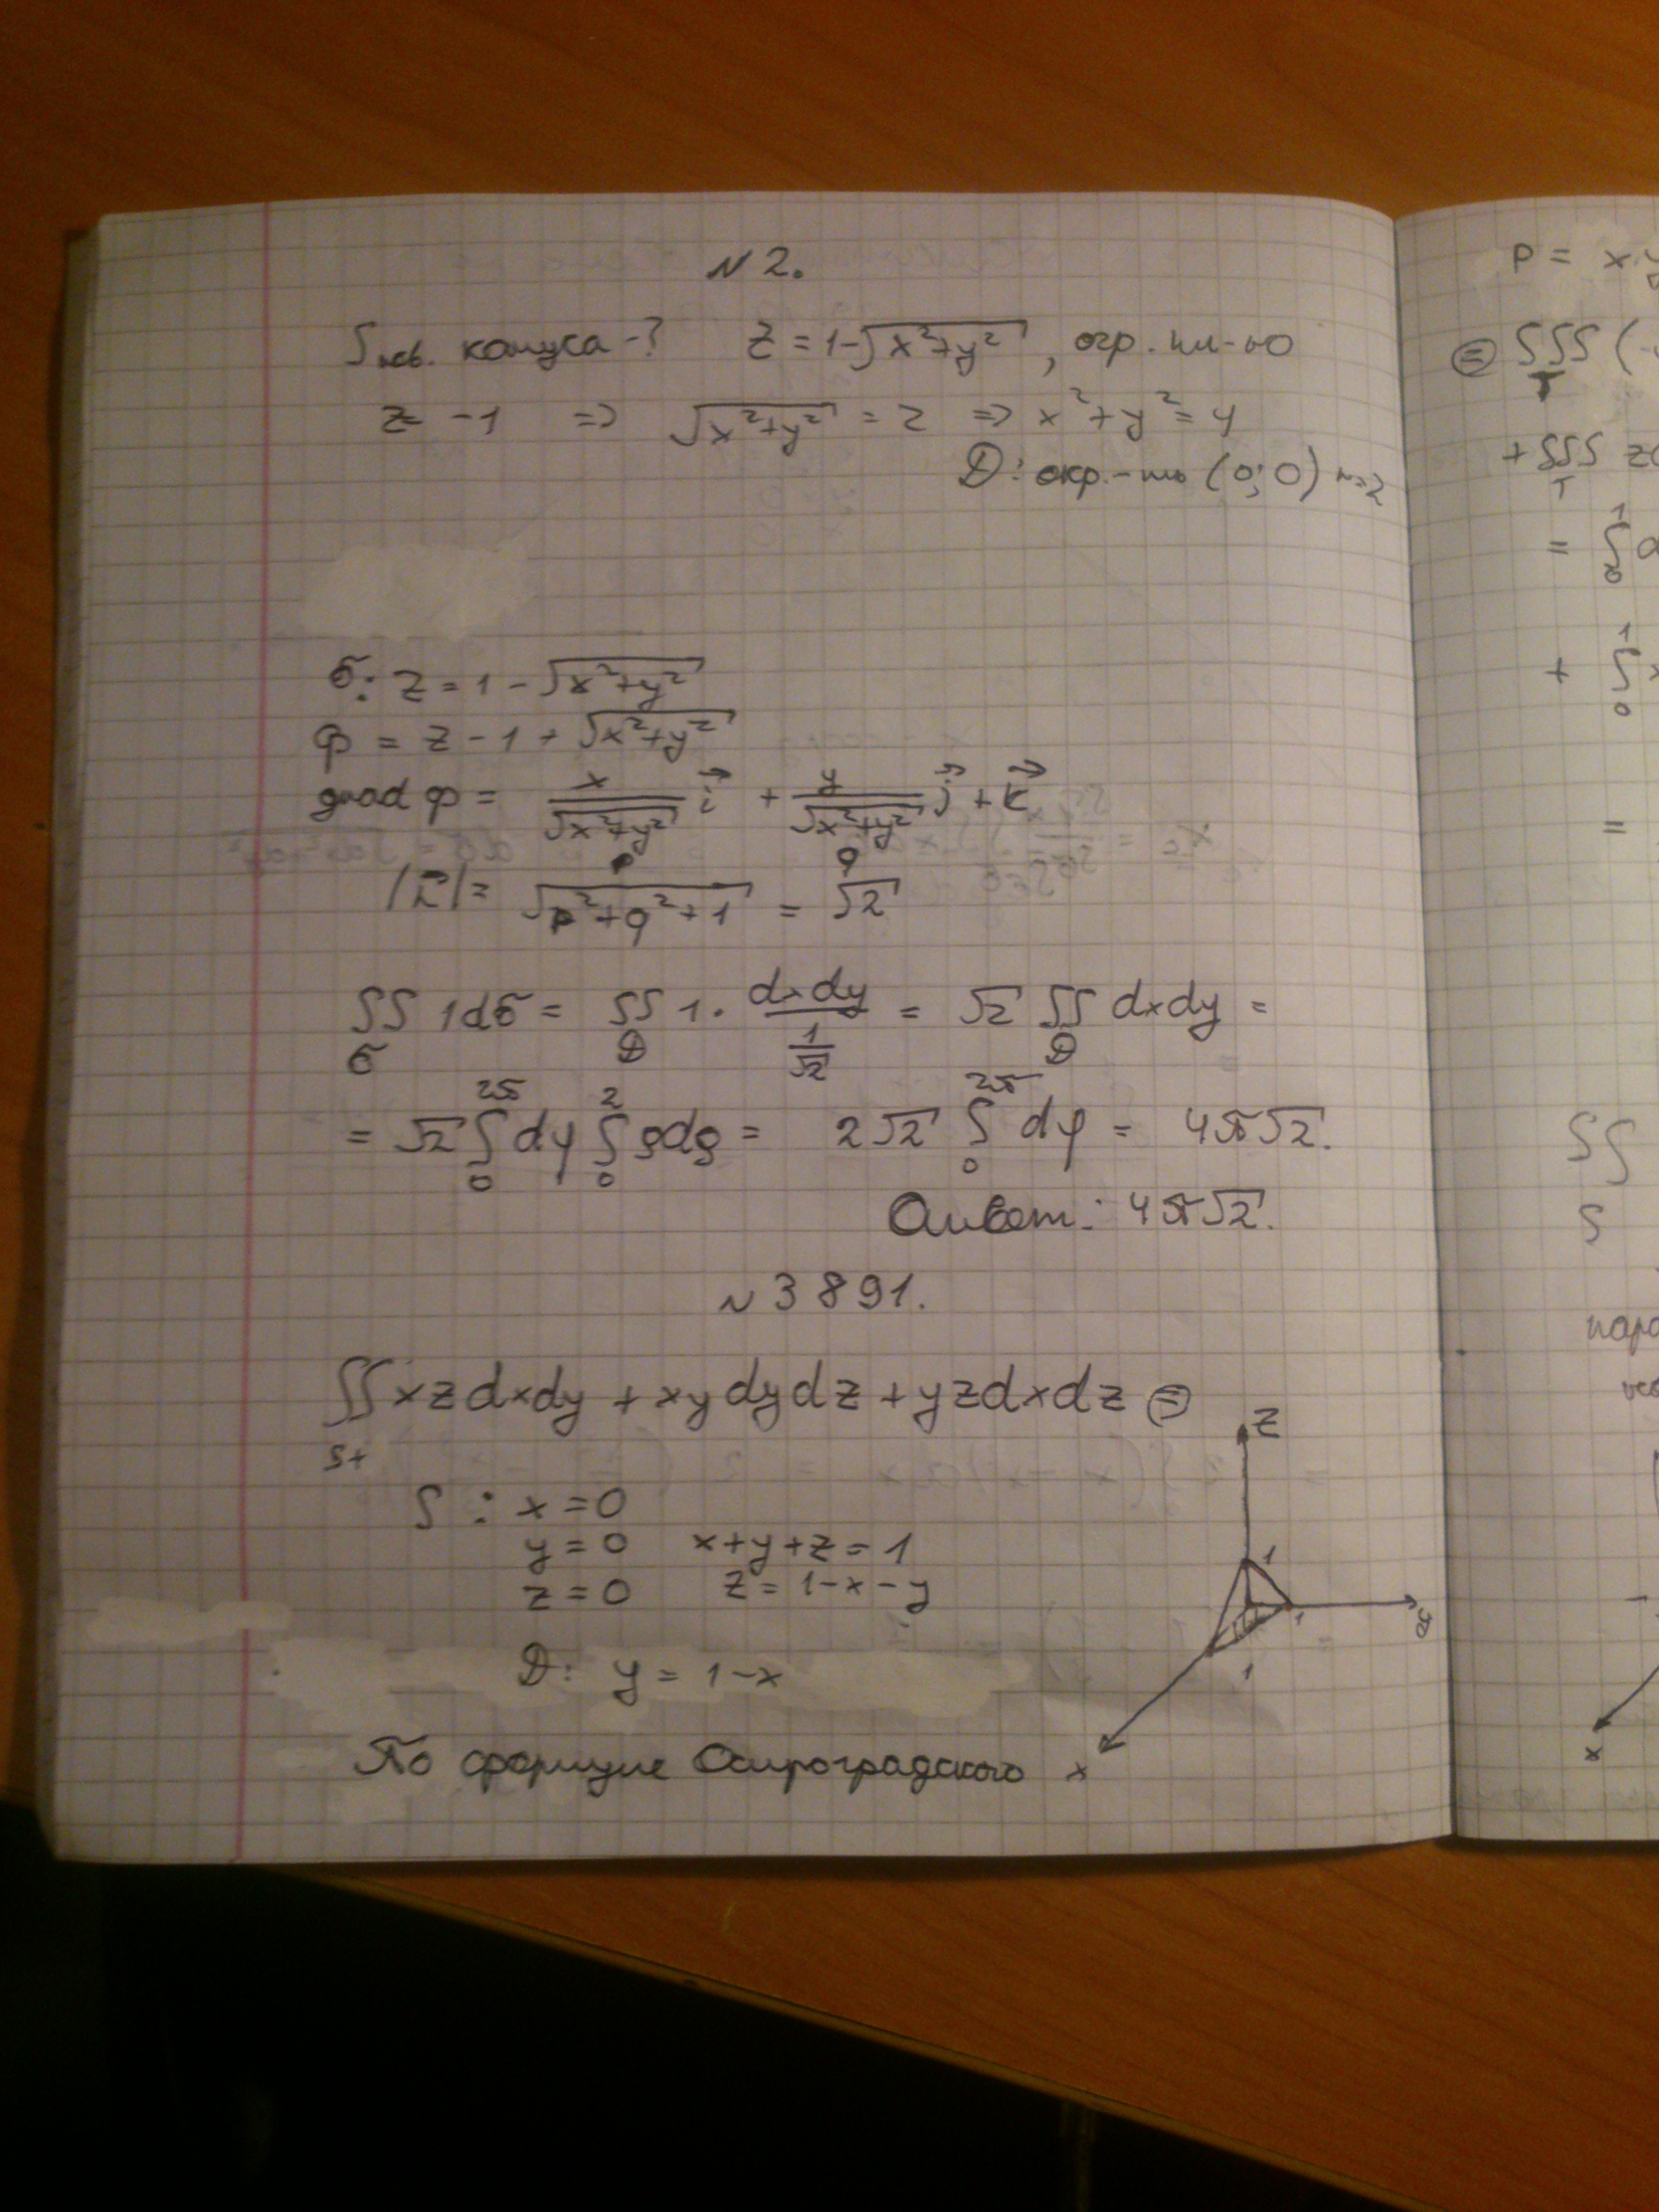 N 2.
S пов. конуса - ? z = 1 - √(x²+y²), огр. пл-ю
z = -1 => √(x²+y²) = 2 => x²+y² = 4
D: окр.-ть (0;0) r=2
σ: z = 1 - √(x²+y²)
φ = z - 1 + √(x²+y²)
grad φ = x/√(x²+y²) i + y/√(x²+y²) j + k
p q
|n| = √(p²+q²+1) = √2
∬_σ 1dσ = ∬_D 1 · dxdy/(1/√2) = √2 ∬_D dxdy =
= √2 ∫₀^2π dφ ∫₀² ρdρ = 2√2 ∫₀^2π dφ = 4π√2.
Ответ: 4π√2.
N 3891.
∬_S+ xzdxdy + xydydz + yzdxdz ⊜
S : x = 0
y = 0 x+y+z = 1
z = 0 z = 1-x-y
D: y = 1-x
По формуле Остроградского
z
1
1
y
1
x
P = x
⊜ ∭_T (
+ ∭_T z
= ∫₀¹ d
+ ∫₀¹ x
=
∬
S
пара
x